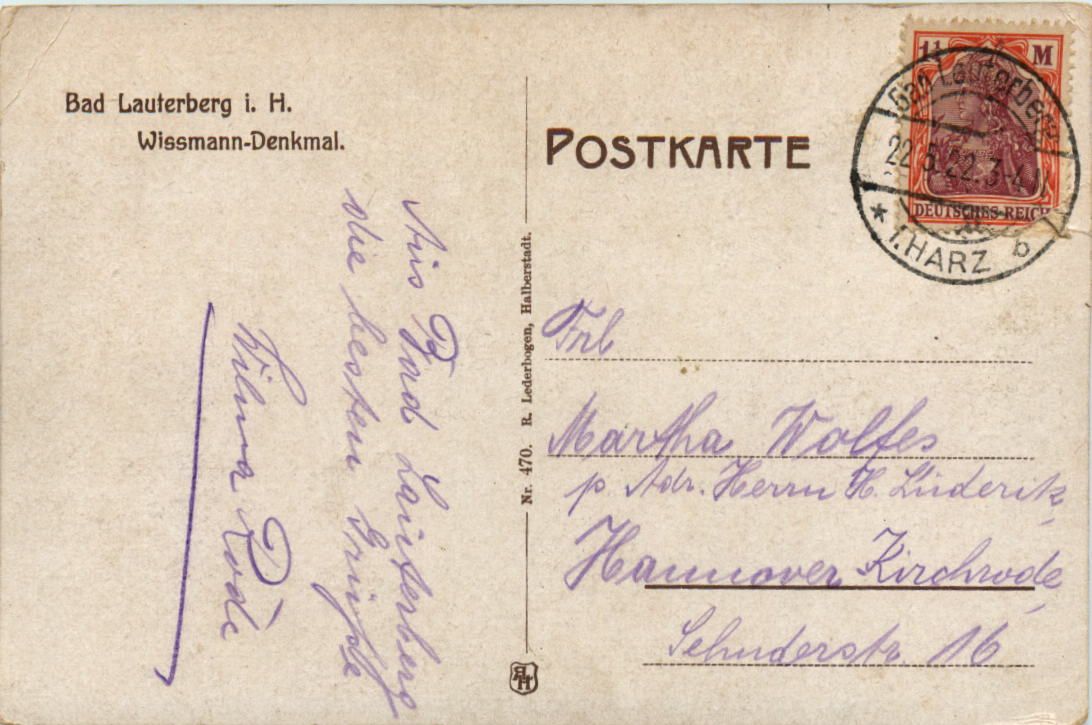 Bad Lauterberg i. H.
Wissmann-Denkmal.
POSTKARTE
1¼ M
DEUTSCHES REICH
Bad Lauterberg
22.5.22.3-4
* i. HARZ b
Aus Bad Lauterberg
die besten Grüße
Wilma Rode
Nr. 470. R. Lederbogen, Halberstadt.
Frl
Martha Wolfes
p Adr. Herrn H. Lüderitz
Hannover Kirchrode
Sehnderstr. 16